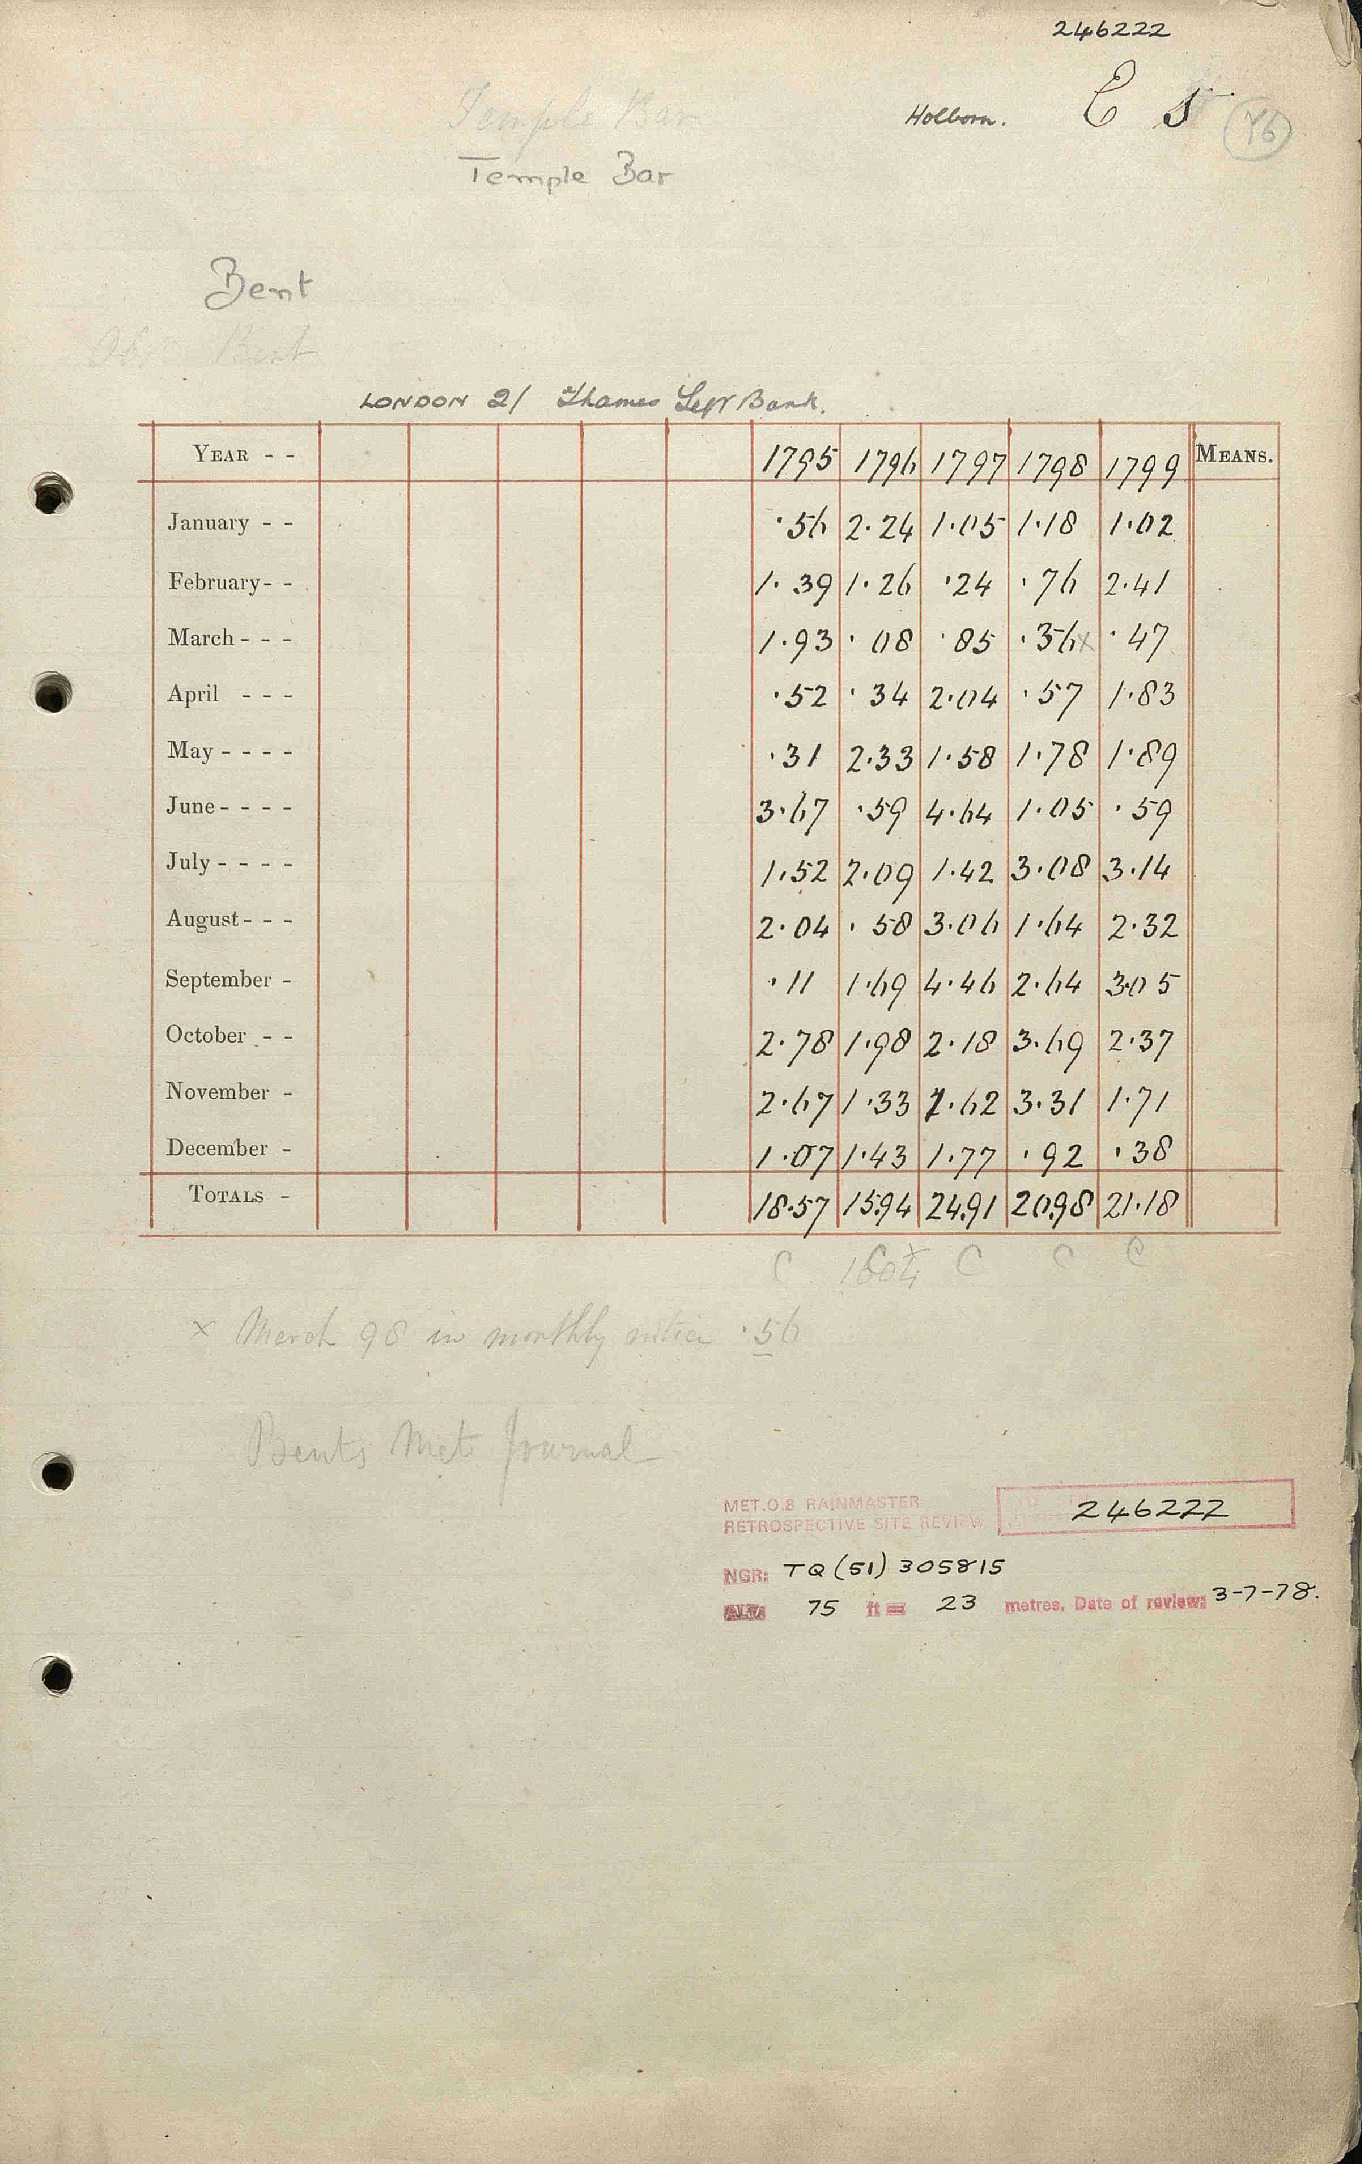 246222
Temple Bar
Holborn. C 5 76
Temple Bar
Bent
Bent
LONDON 21 Thames Left Bank.
YEAR - - 1795 1796 1797 1798 1799 MEANS.
January - - ·56 2·24 1·05 1·18 1·02
February - - 1·39 1·26 ·24 ·76 2·41
March - - - 1·93 ·08 ·85 ·36x ·47
April - - - ·52 ·34 2·04 ·57 1·83
May - - - - ·31 2·33 1·58 1·78 1·89
June - - - - 3·67 ·59 4·64 1·05 ·59
July - - - - 1·52 2·09 1·42 3·08 3·14
August - - - 2·04 ·58 3·06 1·64 2·32
September - ·11 1·69 4·46 2·64 3·05
October - - 2·78 1·98 2·18 3·69 2·37
November - 2·67 1·33 1·62 3·31 1·71
December - 1·07 1·43 1·77 ·92 ·38
TOTALS - 18·57 15·94 24·91 20·98 21·18
C C C C C
1604
x March 98 in monthly notice ·56
Bents Met Journal
MET.O.8 RAINMASTER
RETROSPECTIVE SITE REVIEW 246222
NGR: TQ (51) 305815
ALT: 75 ft = 23 metres. Date of review: 3-7-78.